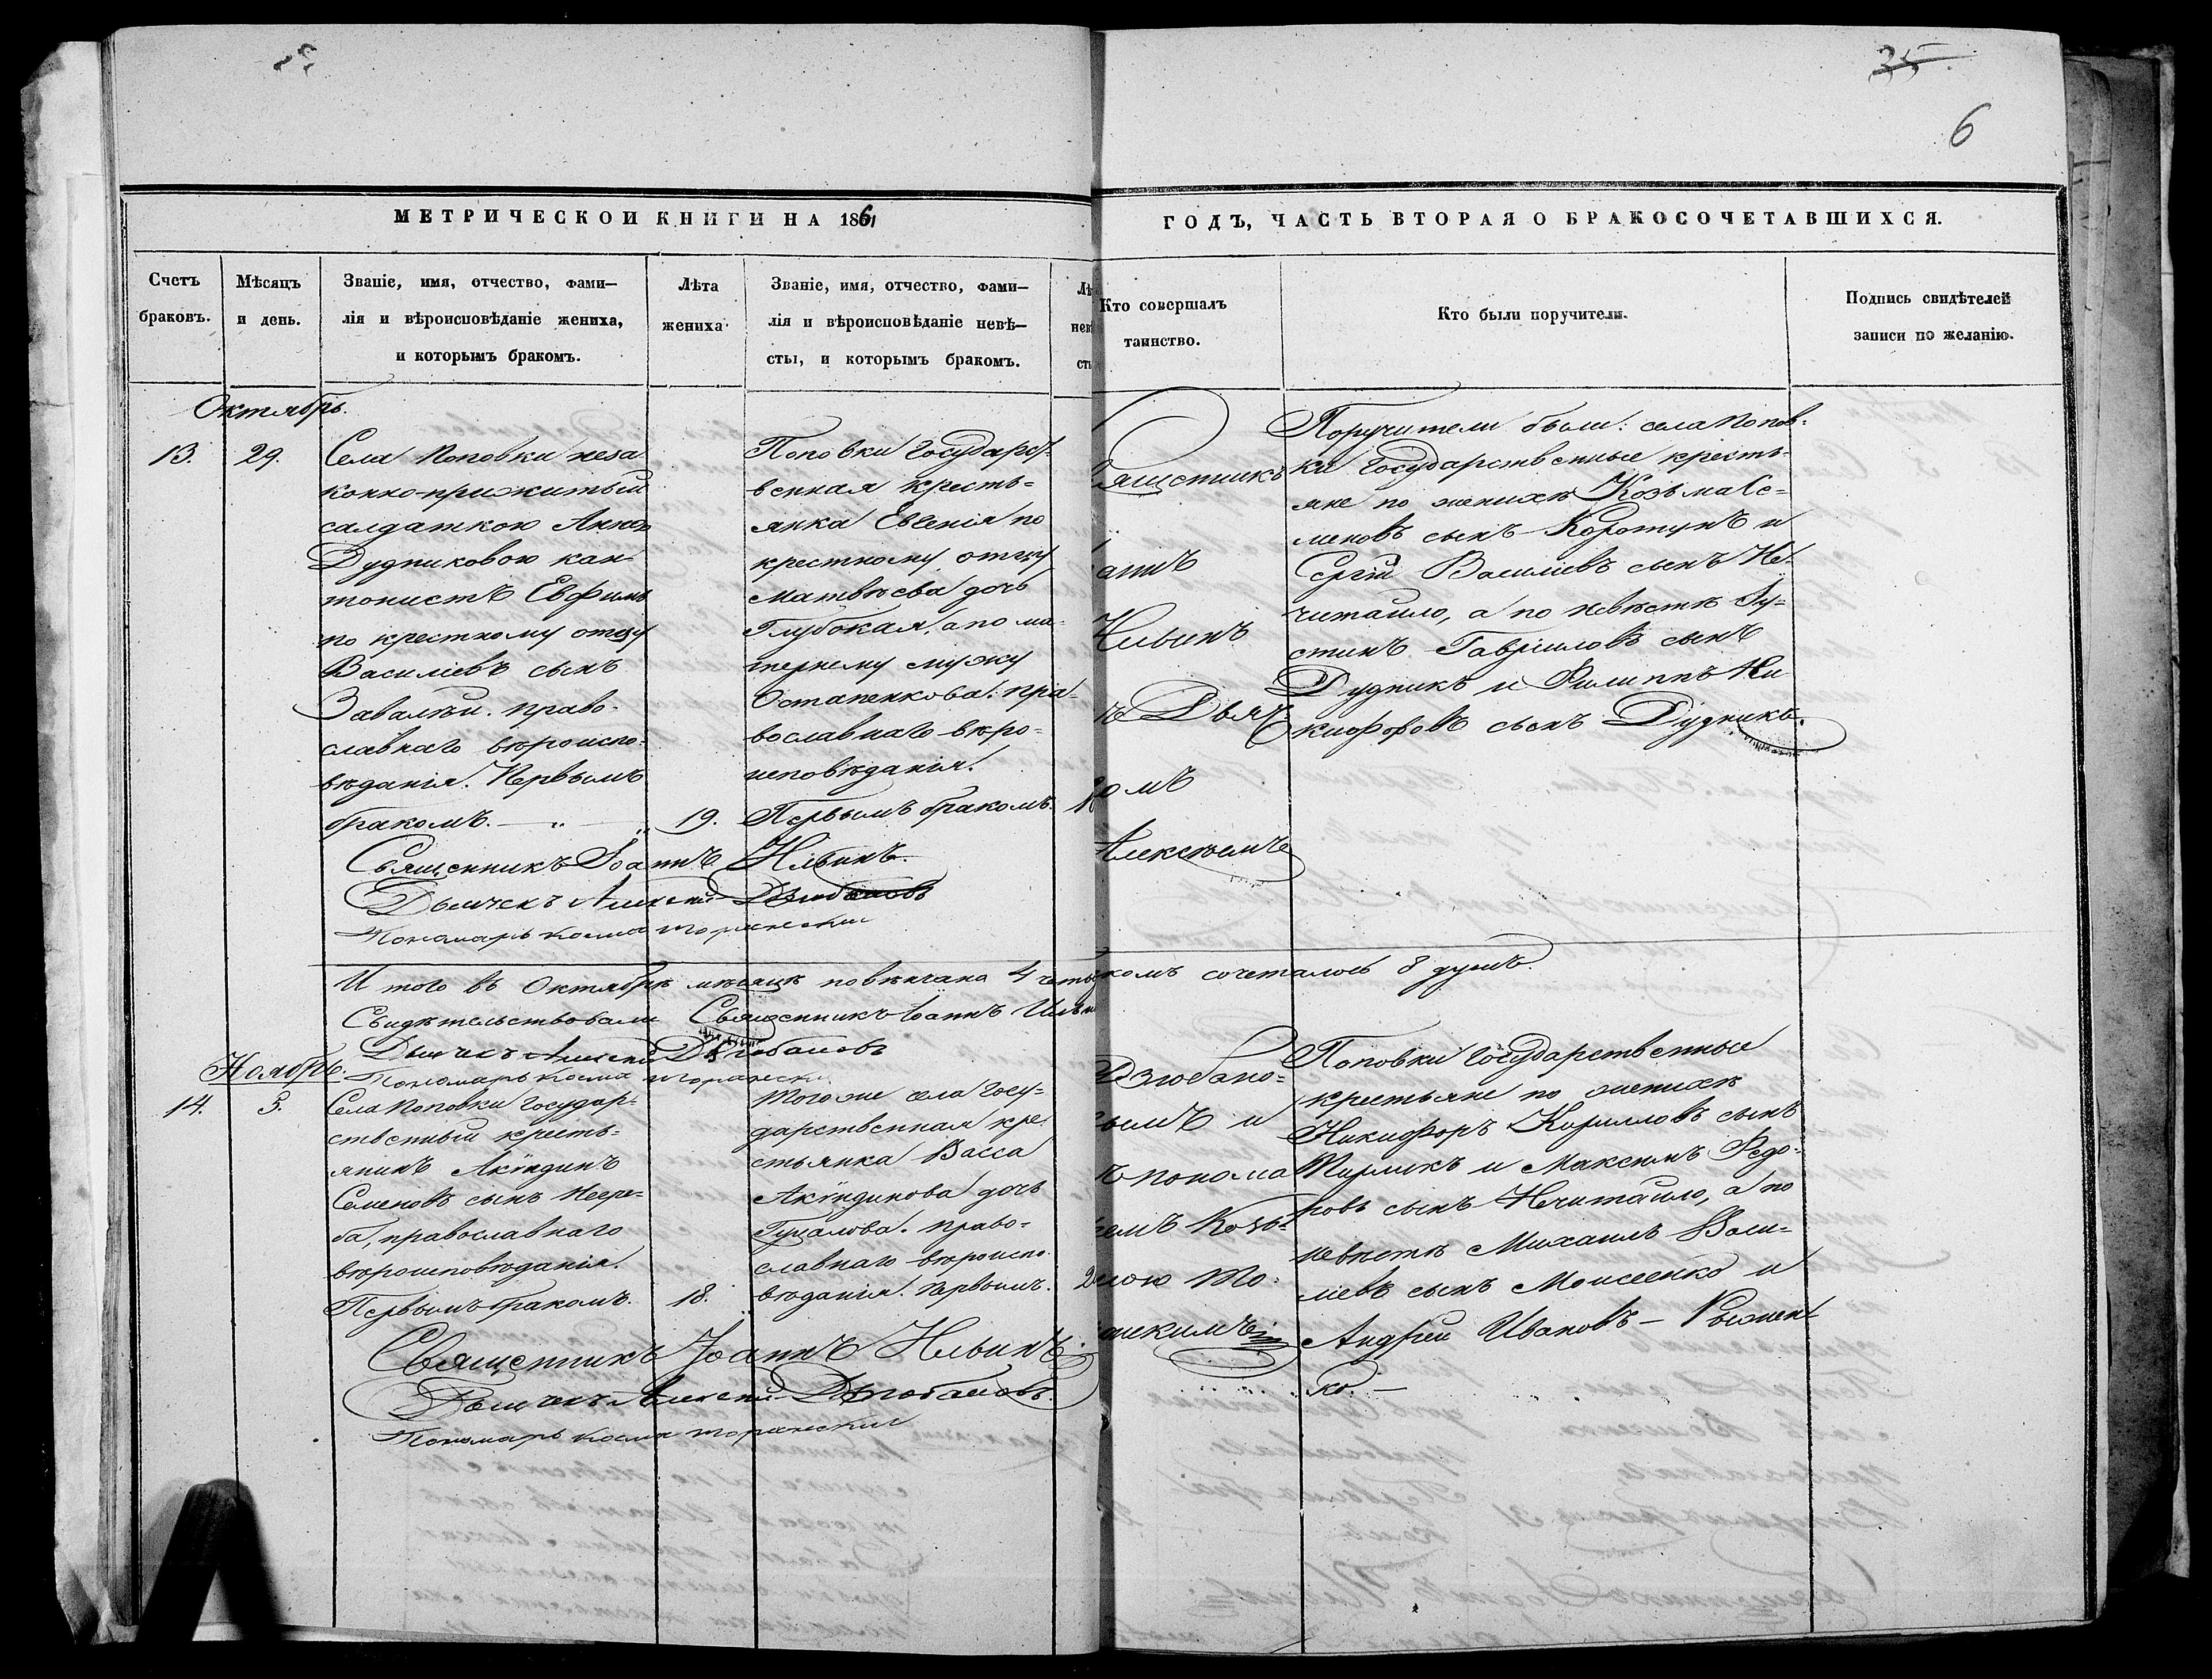 35.
6
МЕТРИЧЕСКОЙ КНИГИ НА 1861
ГОДЪ, ЧАСТЬ ВТОРАЯ О БРАКОСОЧЕТАВШИХСЯ.
Счетъ
браковъ.
Мѣсяцъ
и день.
Званіе, имя, отчество, фами—
лія и вѣроисповѣданіе жениха,
и которымъ бракомъ.
Лѣта
жениха
Званіе, имя, отчество, фами—
лія и вѣроисповѣданіе невѣ—
сты, и которымъ бракомъ.
Лѣ
нев
ст
Кто совершалъ
таинство.
Кто были поручители.
Подпись свидѣтелей
записи по желанію.
Октябрь.
13.
29.
Села Поповки неза
конно-прижитый
салдаткою Анною
Дудниковою кан
тонистъ Евфимъ
по крестному отцу
Василіевъ сынъ
Завалѣй. право-
славнаго вѣроиспо-
вѣданія. Первымъ
бракомъ. — „ — „
19.
Поповки Государст
венная кресть=
янка Евгенія по
крестному отцу
Матвѣева дочь
Глубокая, а по ма-
терному мужу
Остапенкова. пра=
вославнаго вѣро=
исповѣданія.
Первымъ бракомъ.
вященникъ
аннъ
Ильинъ
ъ Дьяч
омъ
Алексѣемъ
Поручители были: села Попов-
ки Государственные кресть-
яне по женихѣ Козьма Се=
меновъ сынъ Коротунъ и
Сергій Василіевъ сынъ Не-
читайло, а по невѣстѣ Іу=
стинъ Гавріиловъ сынъ
Дудникъ и Филиппъ Ни
кифоровъ сынъ Дудникъ.
Священникъ Іоаннъ Ильинъ.
Дьячекъ Алексѣй Дзюбановъ
Пономарь Косма Торянскій
И того въ Октябрѣ мѣсяцѣ повѣнчана 4 четы
комъ сочеталось 8 душъ.
Свидѣтельствовали Священникъ Іоаннъ Ильин
Дьячекъ Алексѣй Дзюбановъ
Пономарь Косма Торянскій
Ноябрь.
14.
5.
Села Поповки Государ-
ственный кресть=
янинъ Акѵндинъ
Семеновъ сынъ Несре=
ба, православнаго
вѣроисповѣданія.
Первымъ бракомъ.
18.
Того же села Госу=
дарственная кре-
стьянка Васса
Акѵндинова дочь
Гуцалова. право=
славнаго вѣроиспо
вѣданія. Первымъ.
Дзюбано=
вымъ и
ъ понома
емъ Козь-
мою То-
янскимъ
Поповки Государственные
крестьяне по женихѣ
Никифоръ Кирилловъ сынъ
Пирликъ и Максимъ Федо-
ровъ сынъ Нечитайло, а по
невѣстѣ Михаилъ Васи=
ліевъ сынъ Моисеенко и
Андрей Ивановъ — Рыжен
ко. —
Священникъ Іоаннъ Ильинъ.
Дьячекъ Алексѣй Дзюбановъ.
Пономарь Косма Торянскій